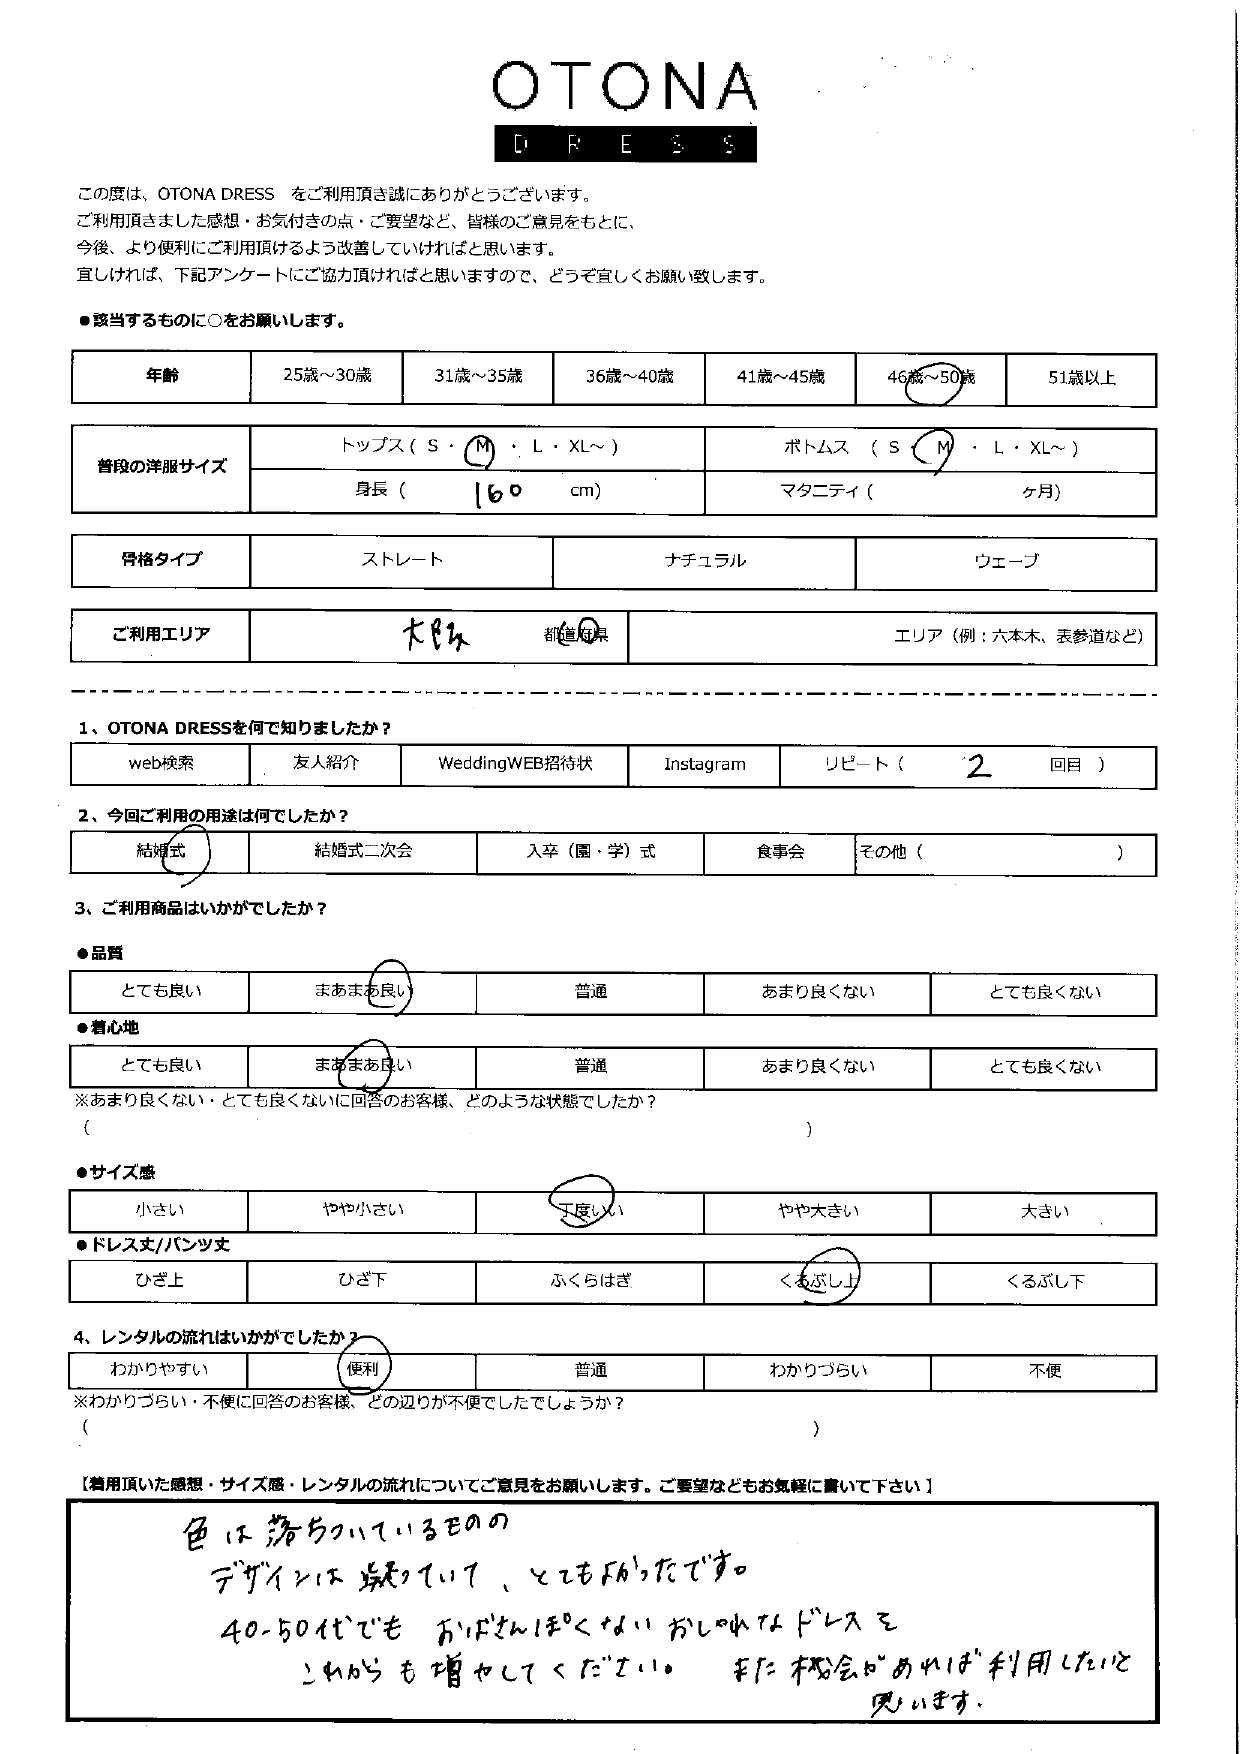 OTONA
DRESS
この度は、OTONA DRESS をご利用頂き誠にありがとうございます。
ご利用頂きました感想・お気付きの点・ご要望など、皆様のご意見をもとに、
今後、より便利にご利用頂けるよう改善していければと思います。
宜しければ、下記アンケートにご協力頂ければと思いますので、どうぞ宜しくお願い致します。
●該当するものに○をお願いします。
年齢 25歳～30歳 31歳～35歳 36歳～40歳 41歳～45歳 46歳～50歳 51歳以上
普段の洋服サイズ トップス ( S ・ M ・ L ・ XL～ ) ボトムス ( S ・ M ・ L ・ XL～ )
身長 ( 160 cm) マタニティ ( ヶ月)
骨格タイプ ストレート ナチュラル ウェーブ
ご利用エリア 大阪 都道府県 エリア（例：六本木、表参道など）
1、OTONA DRESSを何で知りましたか？
web検索 友人紹介 WeddingWEB招待状 Instagram リピート ( 2 回目 )
2、今回ご利用の用途は何でしたか？
結婚式 結婚式二次会 入卒（園・学）式 食事会 その他 ( )
3、ご利用商品はいかがでしたか？
●品質
とても良い まあまあ良い 普通 あまり良くない とても良くない
●着心地
とても良い まあまあ良い 普通 あまり良くない とても良くない
※あまり良くない・とても良くないに回答のお客様、どのような状態でしたか？
( )
●サイズ感
小さい やや小さい 丁度いい やや大きい 大きい
●ドレス丈/パンツ丈
ひざ上 ひざ下 ふくらはぎ くるぶし上 くるぶし下
4、レンタルの流れはいかがでしたか？
わかりやすい 便利 普通 わかりづらい 不便
※わかりづらい・不便に回答のお客様、どの辺りが不便でしたでしょうか？
( )
【着用頂いた感想・サイズ感・レンタルの流れについてご意見をお願いします。ご要望などもお気軽に書いて下さい】
色は落ちついているものの
デザインは凝っていて、とてもよかったです。
40-50代でも おばさんぽくない おしゃれな ドレスを
これからも増やしてください。 また機会があれば利用したいと
思います.